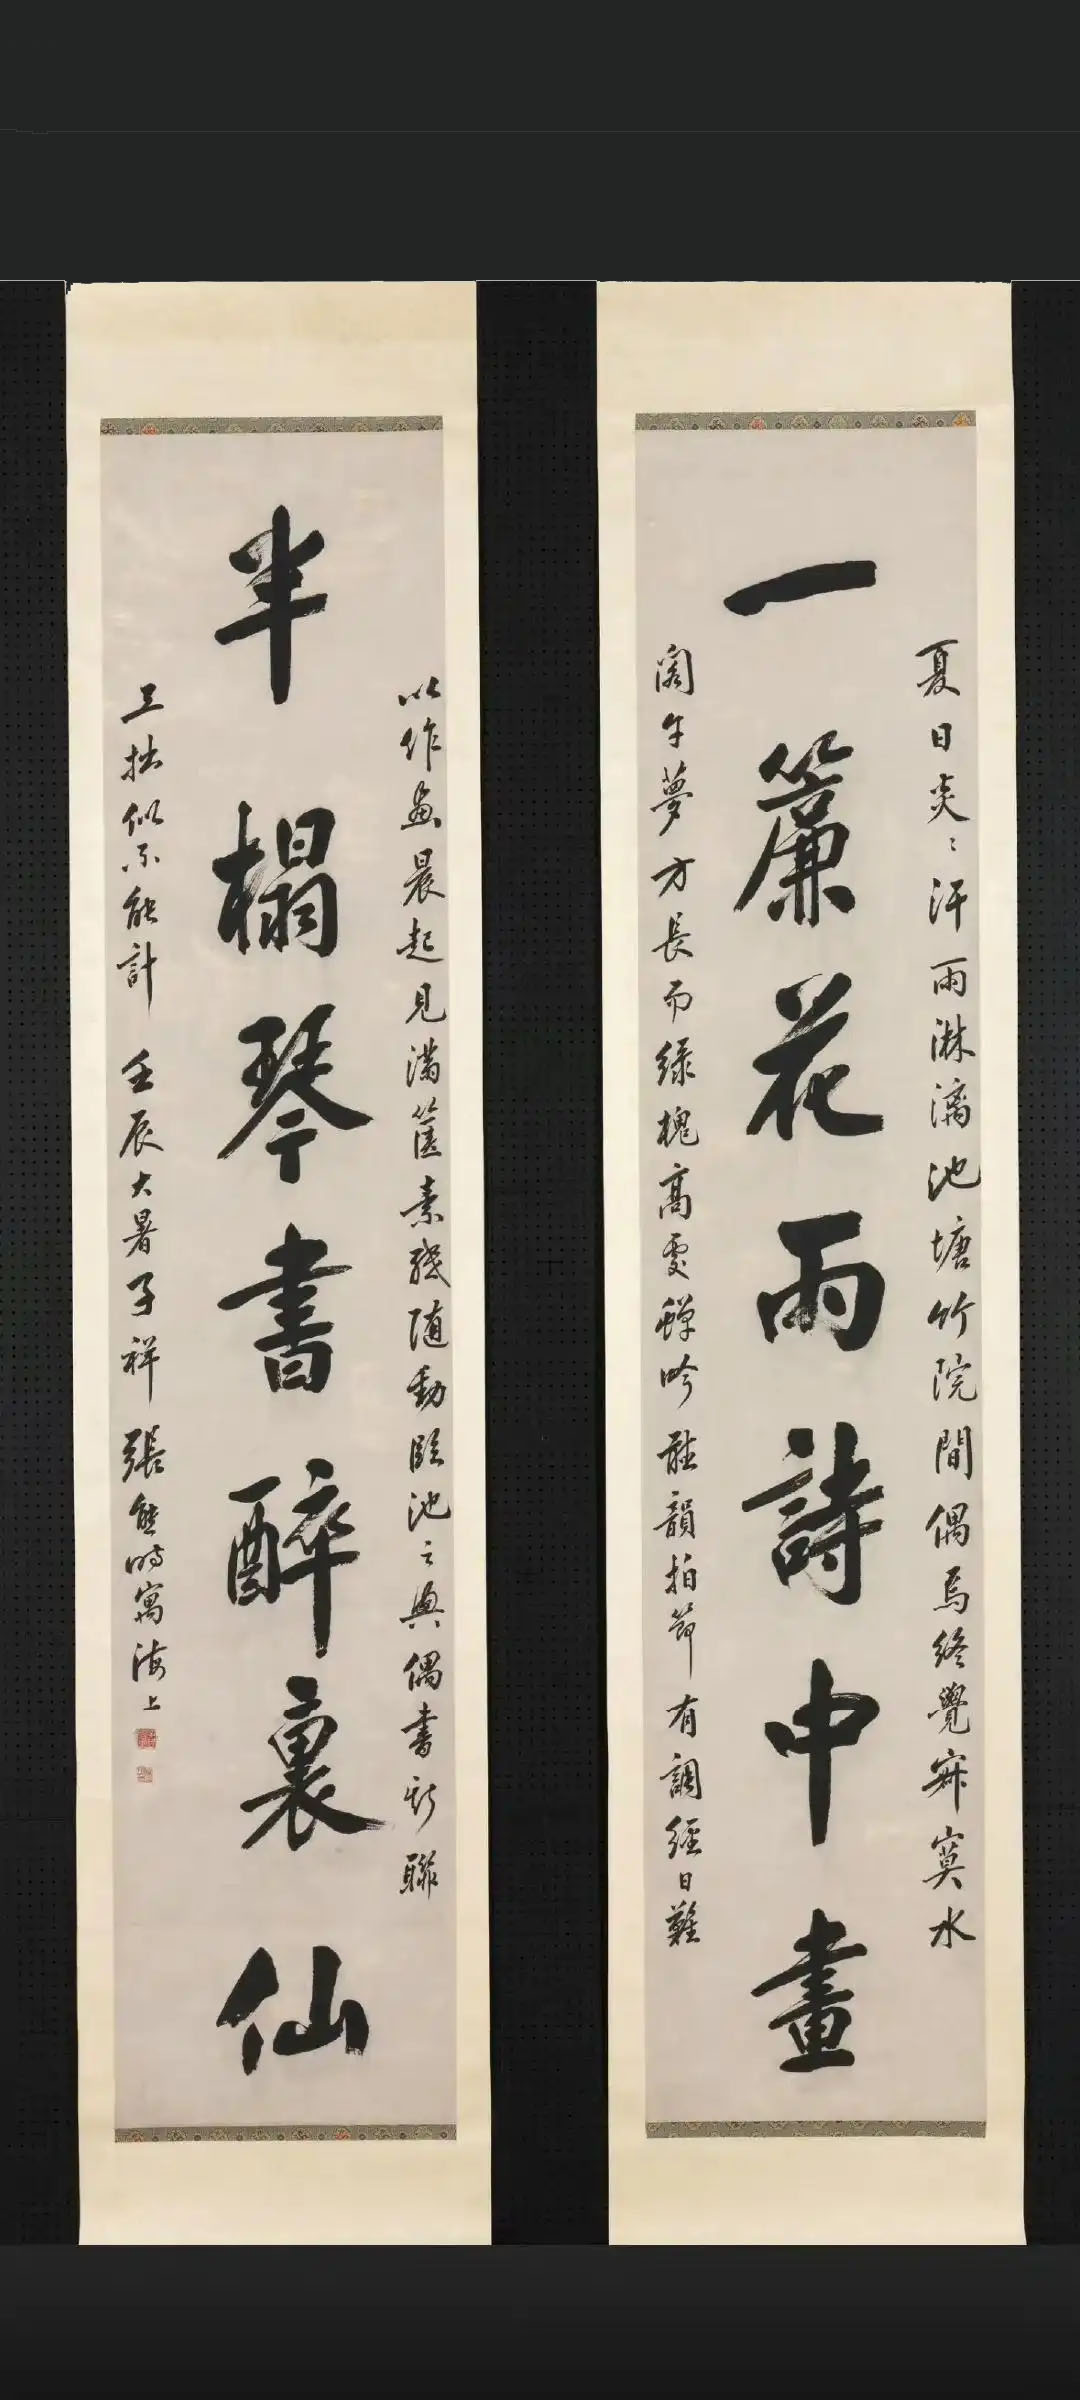 一簾花雨詩中畫
夏日炎〻汗雨淋漓池塘竹院間偶焉終覺寂寞水
閣午夢方長而綠槐高處蟬吟能韻拍節有調經日難
半榻琴書醉裏仙
以作畫晨起見滿篋素箋隨動臨池之興偶書新聯
工拙似不能計 壬辰大暑子祥張熊時寓海上